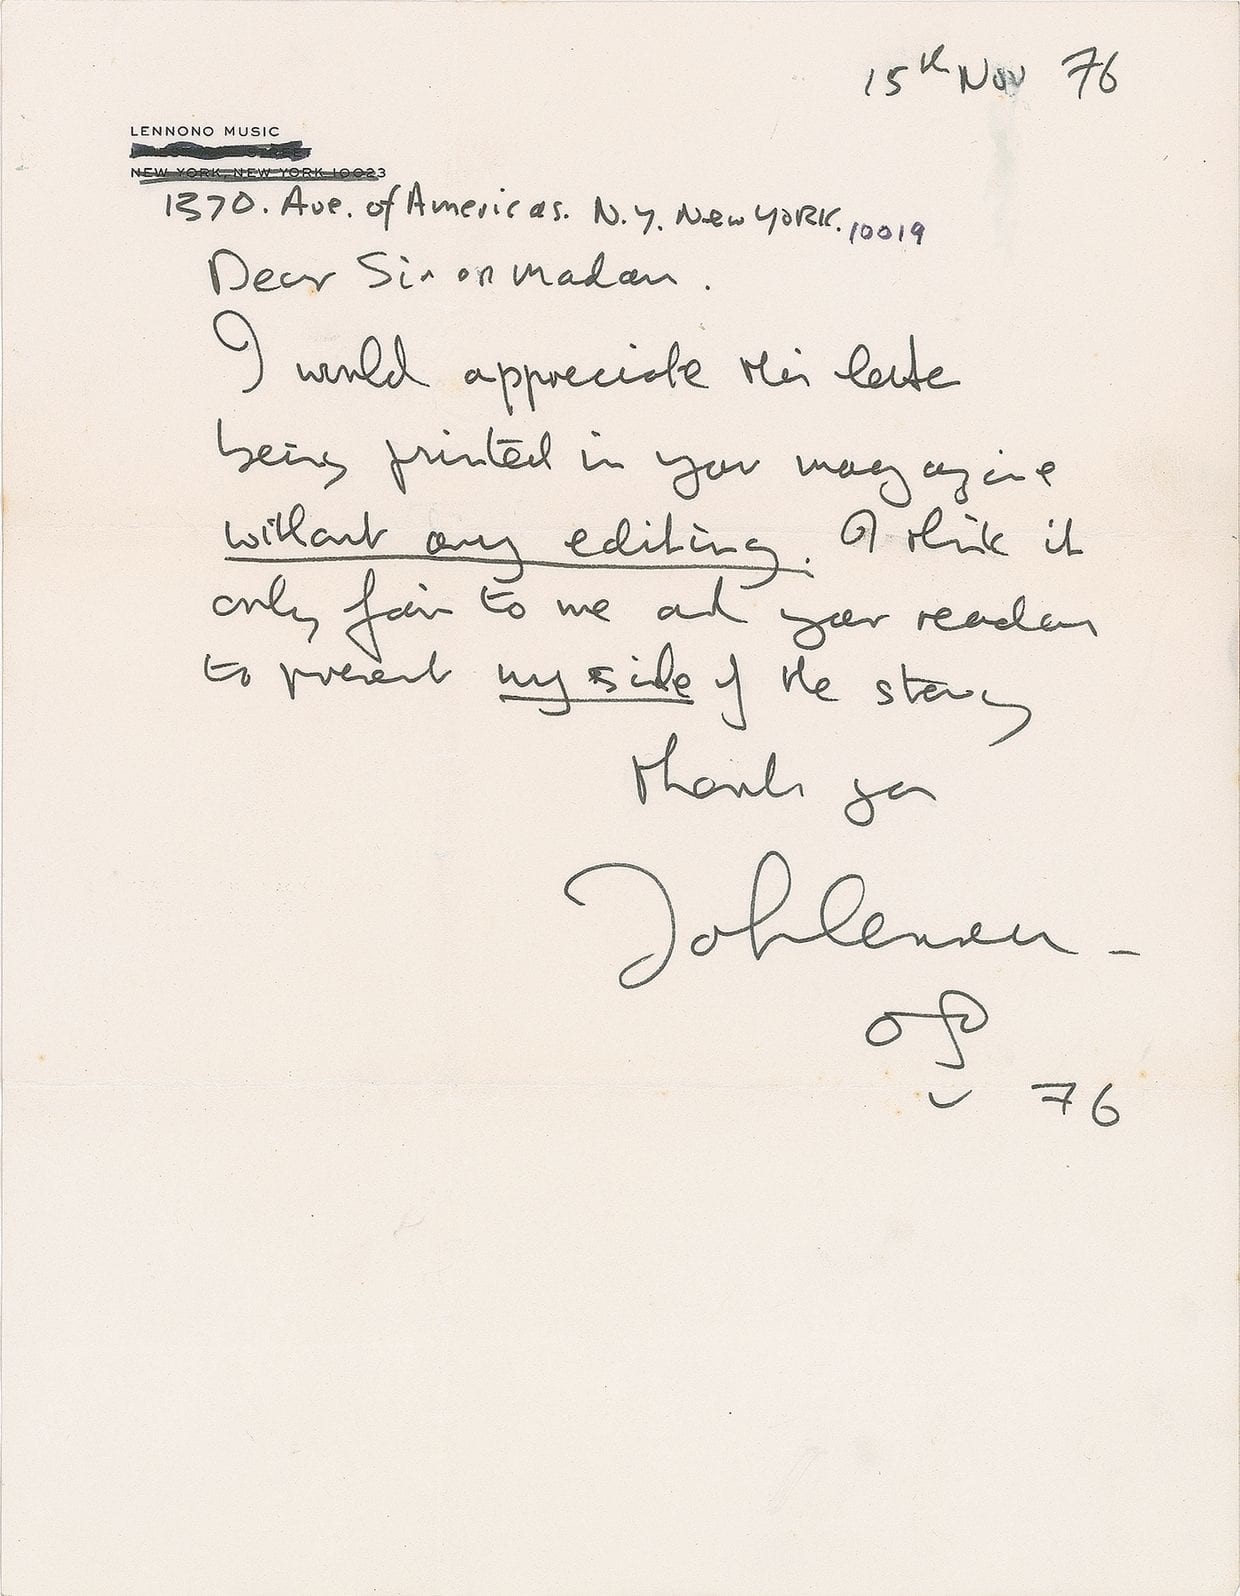 15th Nov 76
LENNONO MUSIC
NEW YORK, NEW YORK 10023
1370. Ave. of Americas. N.Y. New YORK. 10019
Dear Sir or Madam.
I would appreciate this letter
being printed in your magazine
without any editing. I think it
only fair to me and your readers
to present my side of the story
thank you
John Lennon -
76